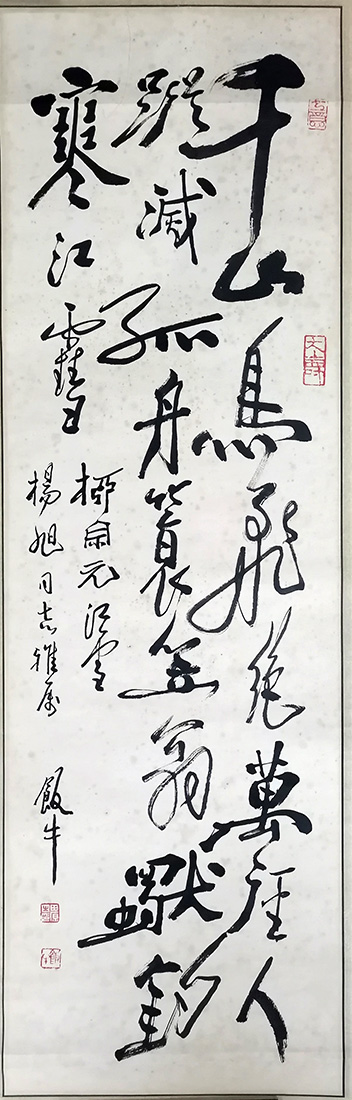 千山鳥飛絕萬徑人
蹤滅孤舟簑笠翁獨釣
寒江雪
柳宗元江雪
楊旭同志雅屬
飯牛